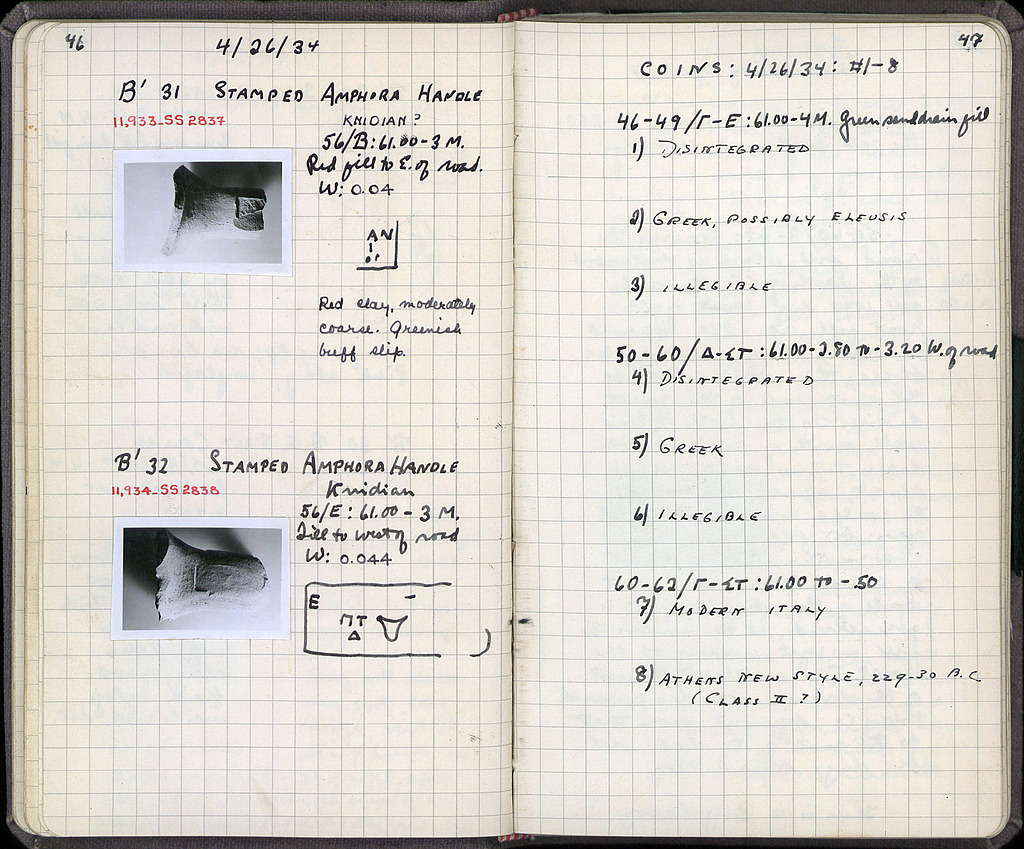 46
4/26/34
B' 31 STAMPED AMPHORA HANDLE
11,933_SS 2837
KNIDIAN?
56/B:61.00-3 M.
Red fill to E. of road.
W: 0.04
AN
Red clay, moderately
coarse. Greenish
buff slip.
B' 32 STAMPED AMPHORA HANDLE
11,934_SS 2838
Knidian
56/E: 61.00 - 3 M.
Fill to west of road
W: 0.044
E
ΠΤ
Δ
47
COINS: 4/26/34: #1-8
46-49/Γ-Ε:61.00-4M. Green sand drain fill
1) DISINTEGRATED
2) GREEK, POSSIBLY ELEUSIS
3) ILLEGIBLE
50-60/Δ-ΣΤ:61.00-2.80 TO -3.20 W. of road
4) DISINTEGRATED
5) GREEK
6) ILLEGIBLE
60-62/Γ-ΣΤ:61.00 TO -.50
7) MODERN ITALY
8) ATHENS NEW STYLE, 229-30 B.C.
(CLASS II?)